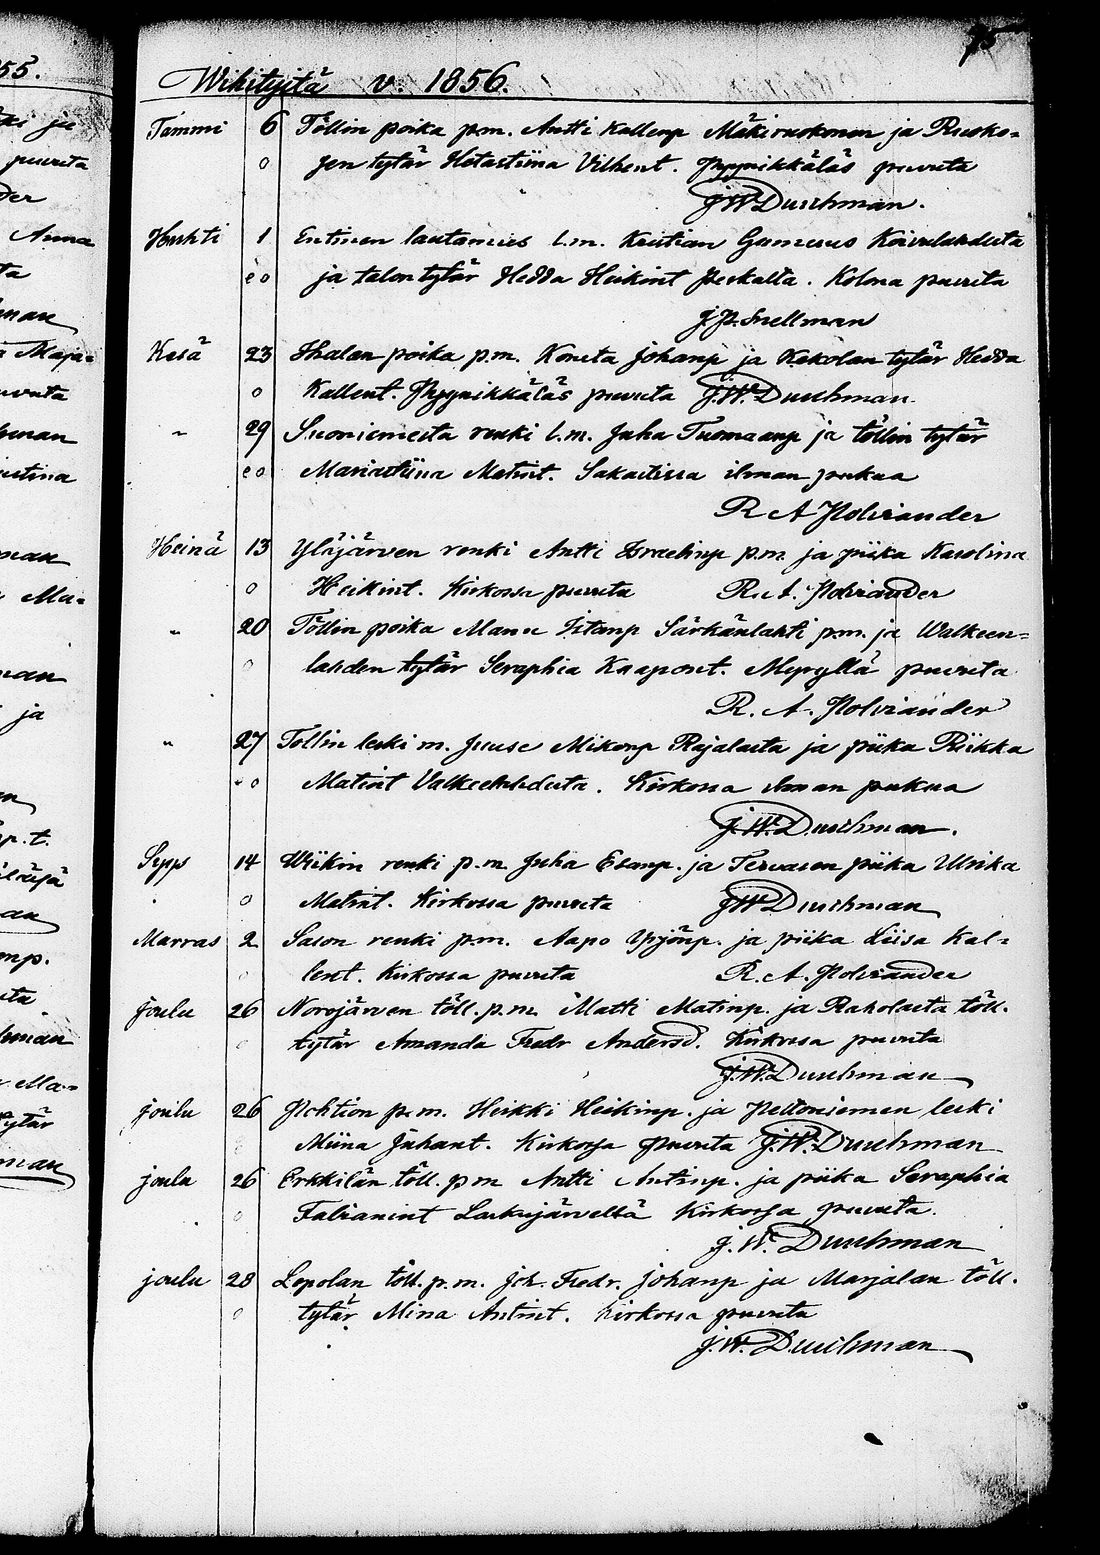 75
Wihityitä v. 1856.
Tammi 6 Töllin poika p.m. Antti Kallenp Mäkiruokonen ja Ruoko=
o jen tytär Hetastiina Vilhent. Pyynikkäläs puvuta
J W Duuhman.
Huhti 1 Entinen lautamies l.m. Kristian Gumerus Koivulahdesta
e o ja talon tytär Hedda Heikint Peskalta. Kolma puvuta
J.P. Snellman
Kesä 23 Ihalan poika p.m. Konsta Johanp ja Kekolan tytär Hedda
o Kallent. Pyynikkäläs puvuta J.W. Duuhman
" 29 Suoniemesta renki l.m. Juha Tuomaanp ja töllin tytär
e o Mariastiina Matint. Sakastissa ilman pukua
R A Polviander
Heinä 13 Ylöjärven renki Antti Israelinp p.m. ja piika Karolina
o Heikint. Kirkossa puvuta R. A. Polviander
" 20 Töllin poika Manu Titanp Särkänlahti p.m. ja Walkeen=
o lahden tytär Seraphia Kaapont. Myryllä puvuta
R. A. Polviander
" 27 Töllin leski m. Juuse Mikonp Rajalasta ja piika Riikka
e o Matint Valkeelahdesta. Kirkossa ilman pukua
J.W. Duuhman.
Syys 14 Wiikin renki p.m. Juha Esanp. ja Tervasen piika Ulrika
o Matint. Kirkossa puvuta J W Duuhman
Marras 2 Sason renki p.m. Aapo Yrjönp. ja piika Liisa Kal=
o lent. Kirkossa puvuta R. A. Polviander
Joulu 26 Norojärven töll. p.m. Matti Matinp. ja Raholasta töll.
o tytär Amanda Fredr Andersd. Kirkossa puvuta
J.W. Duuhman
joulu 26 Pohtion p.m. Heikki Heikinp. ja Peltoniemen leski
Miina Juhant. Kirkossa puvuta J.W. Duuhman
joulu 26 Erkkilän töll. p.m Antti Antinp. ja piika Seraphia
o Fabianint Laskujärveltä Kirkossa puvuta.
J. W. Duuhman
joulu 28 Lepolan töll. p.m. Joh. Fredr. Johanp ja Marjalan töll.
o tytär Mina Antint. Kirkossa puvuta
J.W. Duuhman